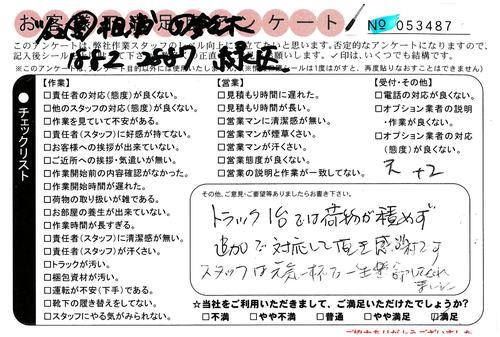 お客様満足度アンケート! № 053487
このアンケートは、弊社作業スタッフのレベル向上に役立てたいと思います。否定的なアンケートになりますので、
チェックリスト
【作業】
□責任者の対応(態度)が良くない。
□他のスタッフの対応(態度)が良くない。
□作業を見ていて不安がある。
□責任者(スタッフ)に好感が持てない。
□お客様への挨拶が出来ていない。
□ご近所への挨拶・気遣いが無い。
□作業開始前の内容確認がなかった。
□作業開始時間が遅れた。
□荷物の取り扱いが雑である。
□お部屋の養生が出来ていない。
□作業時間が長すぎる。
□責任者(スタッフ)に清潔感が無い。
□責任者(スタッフ)が汗くさい。
□トラックが汚い。
□梱包資材が汚い。
□運転が不安(下手)である。
□靴下の履き替えをしてない。
□スタッフにやる気がみられない。
【営業】
□見積もり時間に遅れた。
□見積もり時間が長い。
□営業マンに清潔感が無い。
□営業マンが煙草くさい。
□営業マンが汗くさい。
□営業態度が良くない。
□営業の説明と作業が一致してない。
【受付・その他】
□電話の対応が良くない。
□オプション業者の説明
・作業が良くない。
□オプション業者の対応
(態度)が良くない。
その他、ご意見・ご要望等ありましたらお書き下さい。
トラック1台では荷物が積めず
追加で対応して頂き感謝です
スタッフは元気一杯で一生懸命してくれ
ました
☆当社をご利用いただきまして、ご満足いただけたでしょうか?
□不満 □やや不満 □普通 □やや満足 □満足
ご協力ありがとうございました